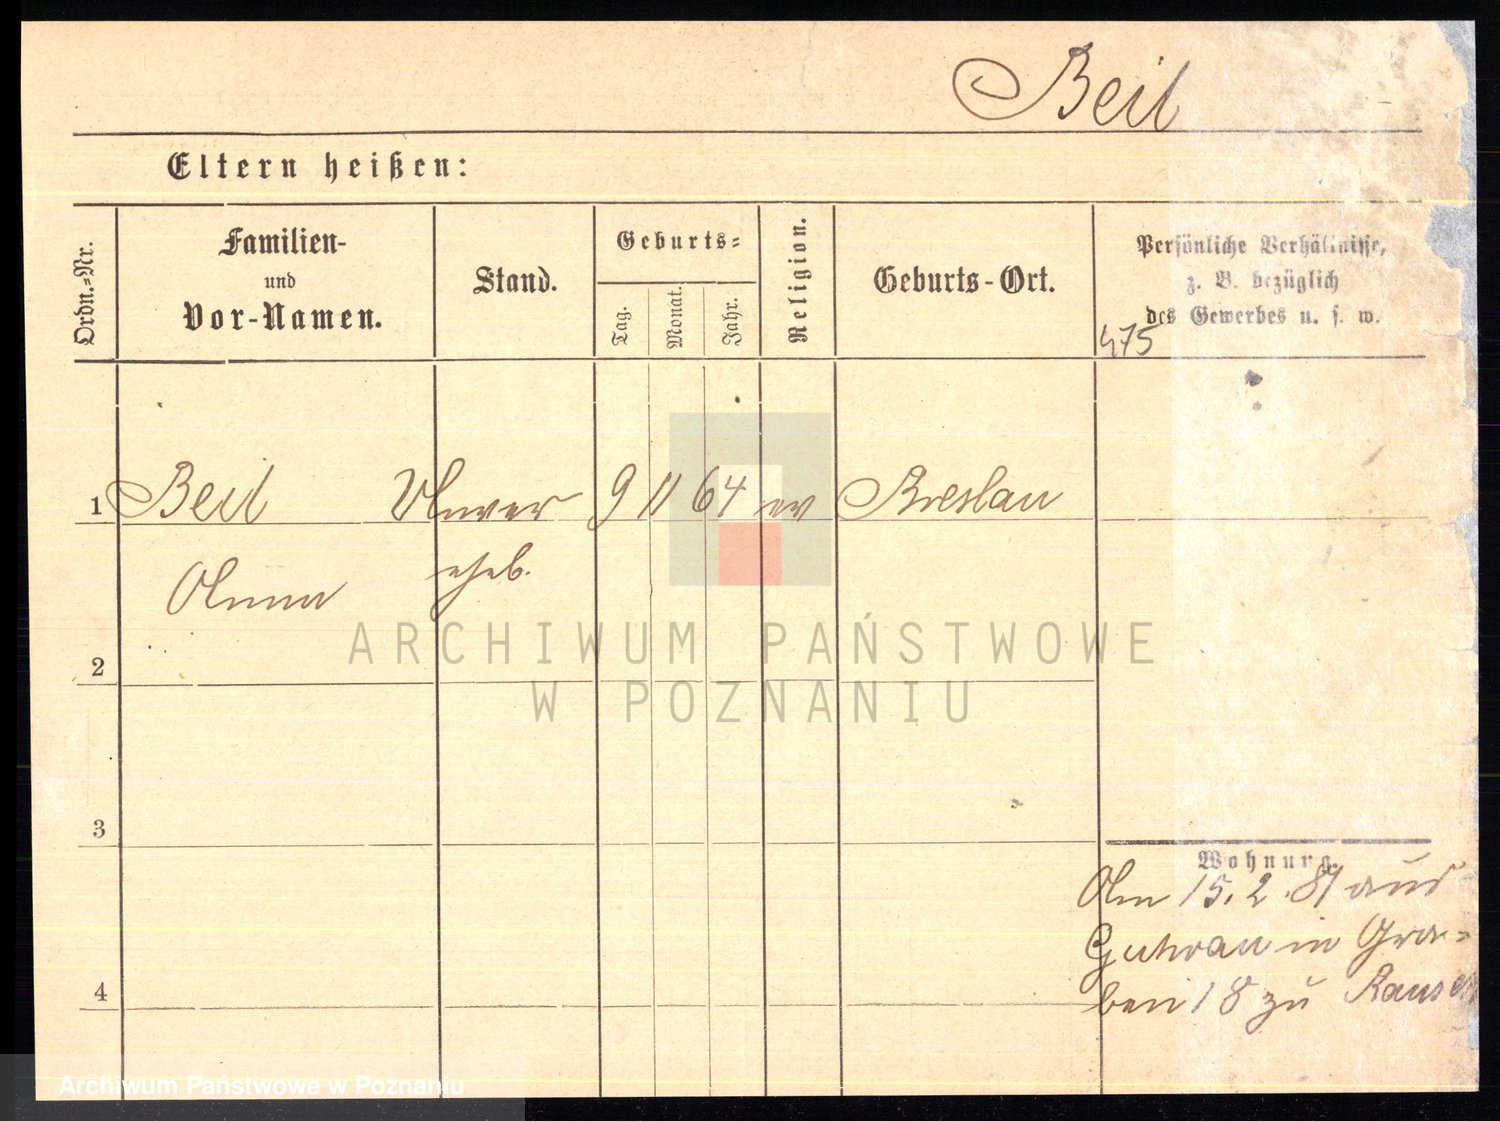 Beil
Eltern heißen:
Ordn.-Nr.
Familien-
und
Vor-Namen.
Stand.
Geburts-
Tag.
Monat.
Jahr.
Religion.
Geburts-Ort.
Persönliche Verhältnisse,
z. B. bezüglich
des Gewerbes u. s. w.
475
1 Beil 9 11 64 ev Breslau
Anna
2
3
Wohnung.
Am 15.2.87 aus
Guhrau in Gra-
4 ben 18 zu
ARCHIWUM PAŃSTWOWE
W POZNANIU
Archiwum Państwowe w Poznaniu